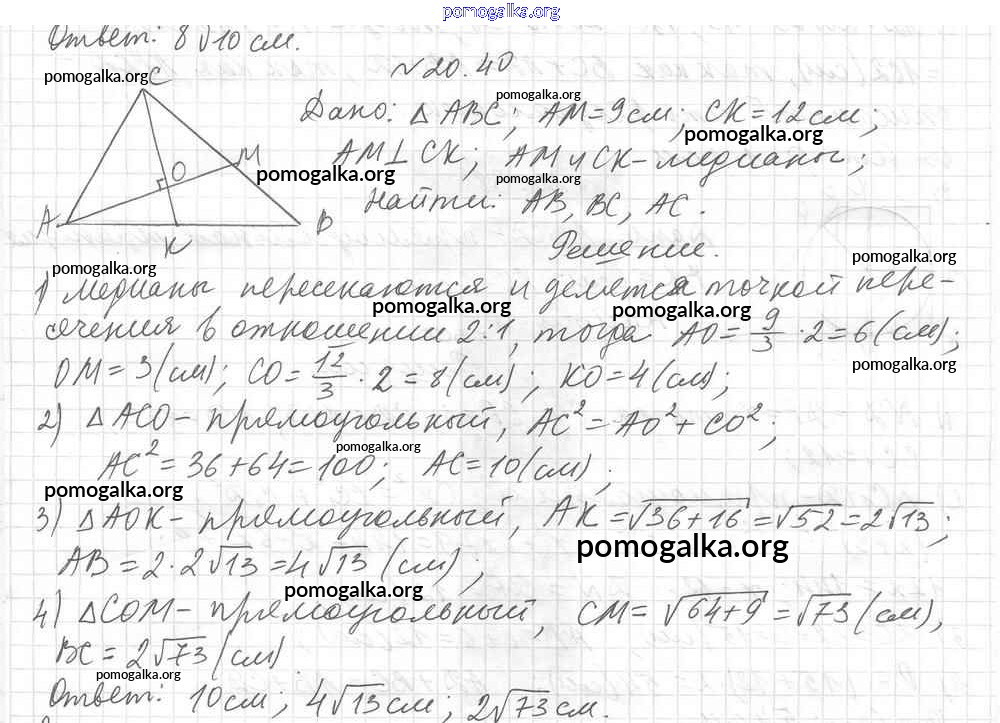 pomogalka.org
Ответ: 8√10 см.
№20.40
pomogalka.org
C
pomogalka.org
Дано: △ABC; AM=9см; CK=12см;
pomogalka.org
M
O
pomogalka.org
AM⊥CK; AM и CK-медианы;
pomogalka.org
Найти: AB, BC, AC.
A
K
B
Решение.
pomogalka.org
pomogalka.org
1) медианы пересекаются и делятся точкой пере-
pomogalka.org
pomogalka.org
сечения в отношении 2:1, тогда AO = 9/3 · 2 = 6 (см);
pomogalka.org
OM = 3 (см); CO = 12/3 · 2 = 8 (см); KO = 4 (см);
2) △ACO - прямоугольный, AC² = AO² + CO²;
pomogalka.org
AC² = 36 + 64 = 100; AC = 10 (см);
pomogalka.org
3) △AOK - прямоугольный, AK = √36+16 = √52 = 2√13;
pomogalka.org
AB = 2·2√13 = 4√13 (см);
pomogalka.org
4) △COM - прямоугольный, CM = √64+9 = √73 (см),
BC = 2√73 (см)
pomogalka.org
Ответ: 10 см; 4√13 см; 2√73 см.